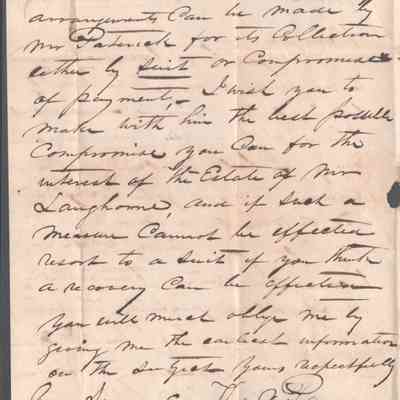 arrangements Can be made by
Mr Paterick for its Collection
either by Suit or Compromise
of payment, - I wish you to
make with him the best possible
Compromise you Can for the
interest of the Estate of Mr
Langhorne, and if such a
measure Cannot be effected
resort to a suit if you think
a recovery Can be effected
you will much oblige me by
giving me the earliest information
on the Subject Yours respectfully